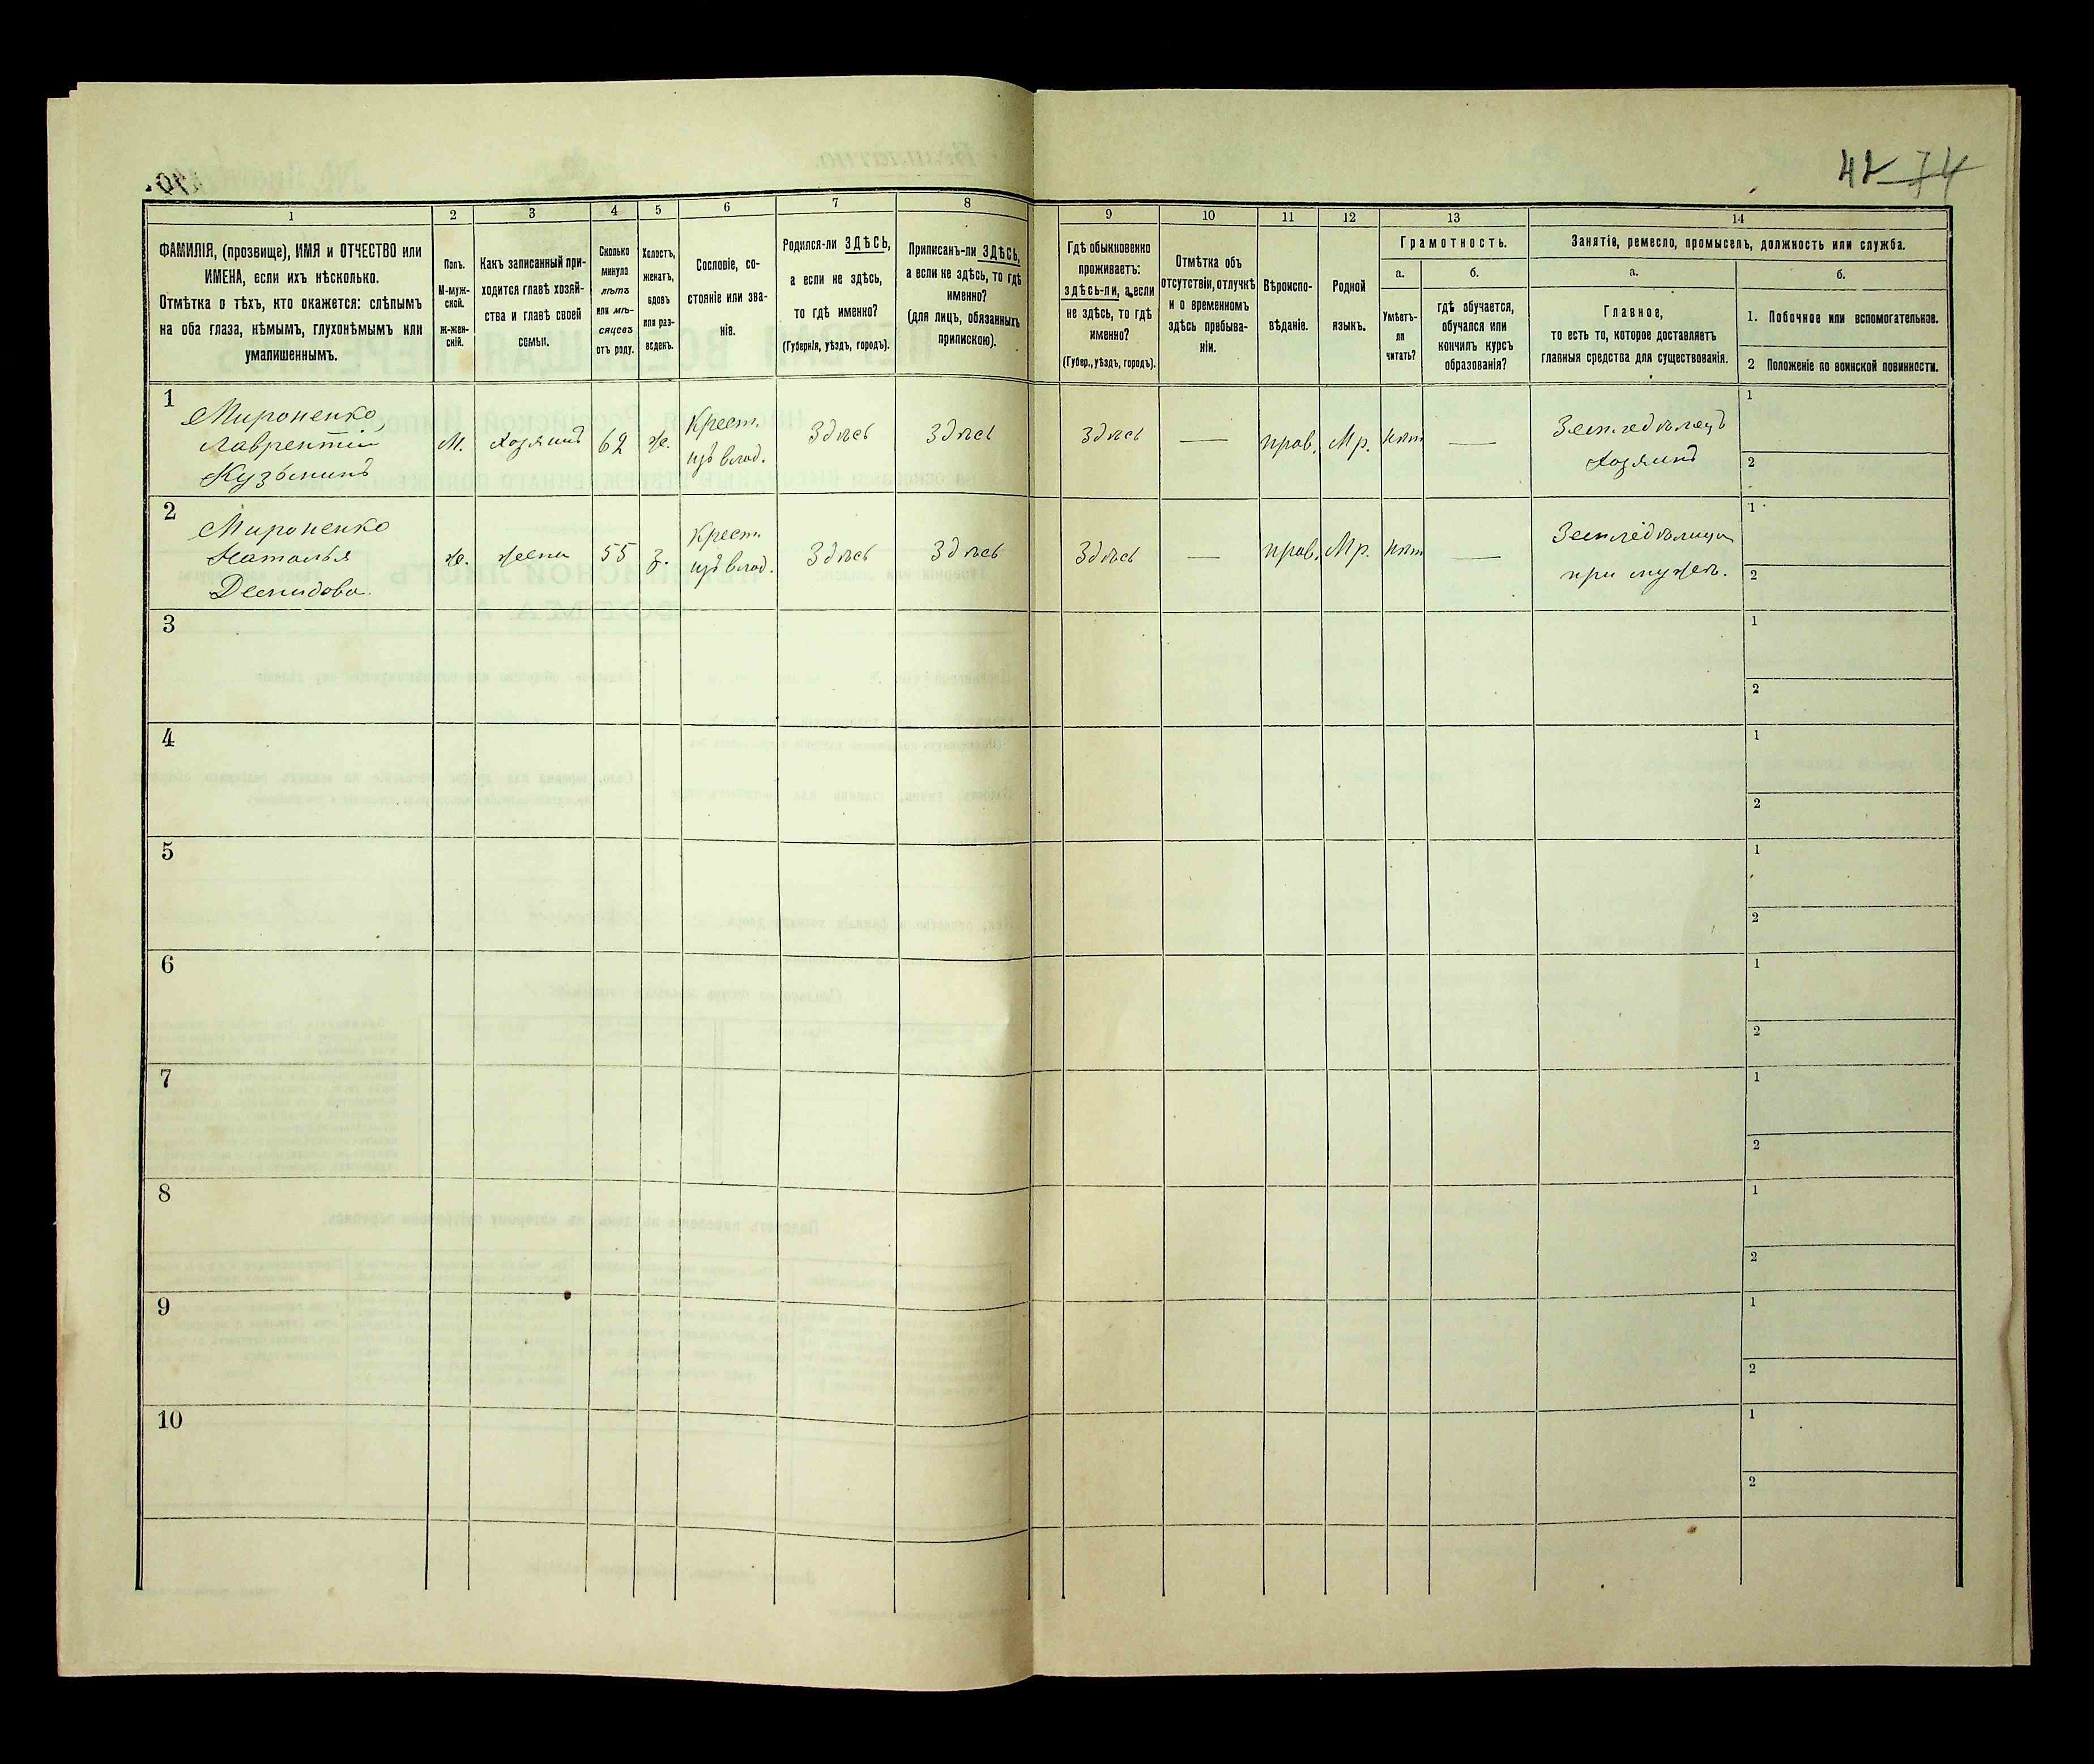 42 74
1
2
3
4
5
6
7
8
9
10
11
12
13
14
ФАМИЛІЯ, (прозвище), ИМЯ и ОТЧЕСТВО или
ИМЕНА, если ихъ нѣсколько.
Отмѣтка о тѣхъ, кто окажется: слѣпымъ
на оба глаза, нѣмымъ, глухонѣмымъ или
умалишеннымъ.
Полъ.
М-муж-
ской.
ж-жен-
скій.
Какъ записанный при-
ходится главѣ хозяй-
ства и главѣ своей
семьи.
Сколько
минуло
лѣтъ
или мѣ-
сяцевъ
отъ роду.
Холостъ,
женатъ,
вдовъ
или раз-
веденъ.
Сословіе, со-
стояніе или зва-
ніе.
Родился-ли ЗДѢСЬ,
а если не здѣсь,
то гдѣ именно?
(Губернія, уѣздъ, городъ).
Приписанъ-ли ЗДѢСЬ,
а если не здѣсь, то гдѣ
именно?
(для лицъ, обязанныхъ
припискою).
Гдѣ обыкновенно
проживаетъ:
здѣсь-ли, а если
не здѣсь, то гдѣ
именно?
(Губер., уѣздъ, городъ).
Отмѣтка объ
отсутствіи, отлучкѣ
и о временномъ
здѣсь пребыва-
ніи.
Вѣроиспо-
вѣданіе.
Родной
языкъ.
Грамотность.
а.
Умѣетъ-
ли
читать?
б.
гдѣ обучается,
обучался или
кончилъ курсъ
образованія?
Занятіе, ремесло, промыселъ, должность или служба.
а.
Главное,
то есть то, которое доставляетъ
главныя средства для существованія.
б.
1. Побочное или вспомогательное.
2 Положеніе по воинской повинности.
1
Мироненко
Лаврентій
Кузьминъ
М.
Хозяинъ
62
ж.
Крест.
изъ влад.
Здѣсь
Здѣсь
Здѣсь
—
прав.
Мр.
нѣт
—
Земледѣлецъ
Хозяинъ
1
2
2
Мироненко
Наталья
Демидова.
ж.
жена
55
з.
Крест.
изъ влад.
Здѣсь
Здѣсь
Здѣсь
—
прав.
Мр.
нѣт
—
Земледѣлица
при мужѣ.
1
2
3
1
2
4
1
2
5
1
2
6
1
2
7
1
2
8
1
2
9
1
2
10
1
2